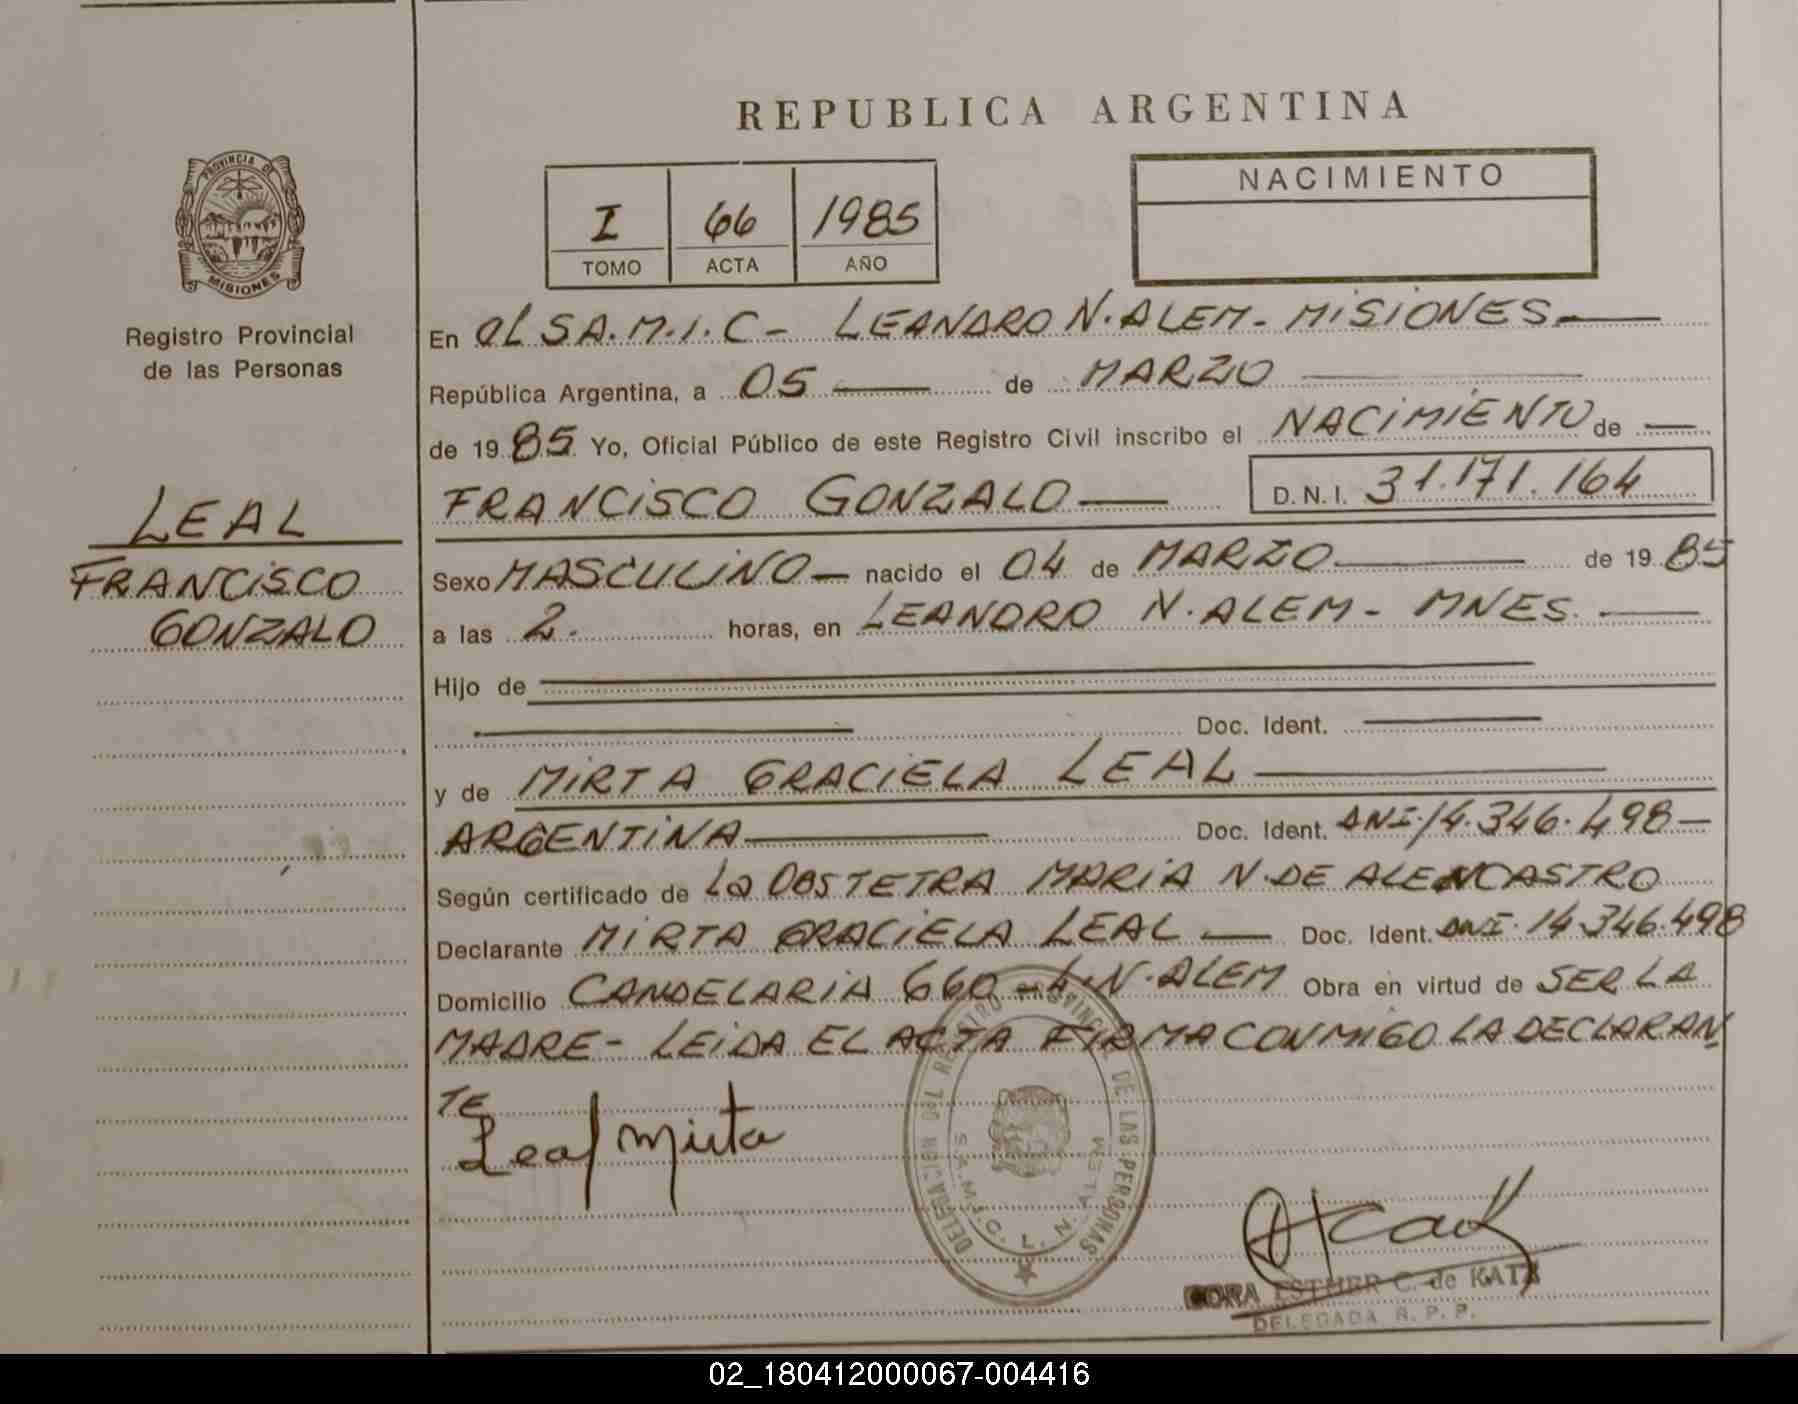 REPUBLICA ARGENTINA
PROVINCIA DE
MISIONES
Registro Provincial
de las Personas
I 66 1985
TOMO ACTA AÑO
NACIMIENTO
En el SA.M.I.C- LEANDRO N. ALEM- MISIONES.
República Argentina, a 05 de MARZO
de 1985 Yo, Oficial Público de este Registro Civil inscribo el NACIMIENTO de
FRANCISCO GONZALO D.N.I. 31.171.164
LEAL
FRANCISCO
GONZALO
Sexo MASCULINO nacido el 04 de MARZO de 1985
a las 2. horas, en LEANDRO N. ALEM- MNES.
Hijo de
Doc. Ident.
y de MIRTA GRACIELA LEAL
ARGENTINA Doc. Ident. DNI. 14.346.498-
Según certificado de La OBSTETRA MARIA N. DE ALENCASTRO
Declarante MIRTA GRACIELA LEAL Doc. Ident. DNI. 14.346.498
Domicilio CANDELARIA 660 - L.N. ALEM Obra en virtud de SER LA
MADRE- LEIDA EL ACTA FIRMA CONMIGO LA DECLARAN
TE
Leal Mirta
REGISTRO PROVINCIAL DE LAS PERSONAS
S.A.M.I.C. L. N. ALEM
ESTHER C. de KATZ
DELEGADA R. P. P.
02_180412000067-004416